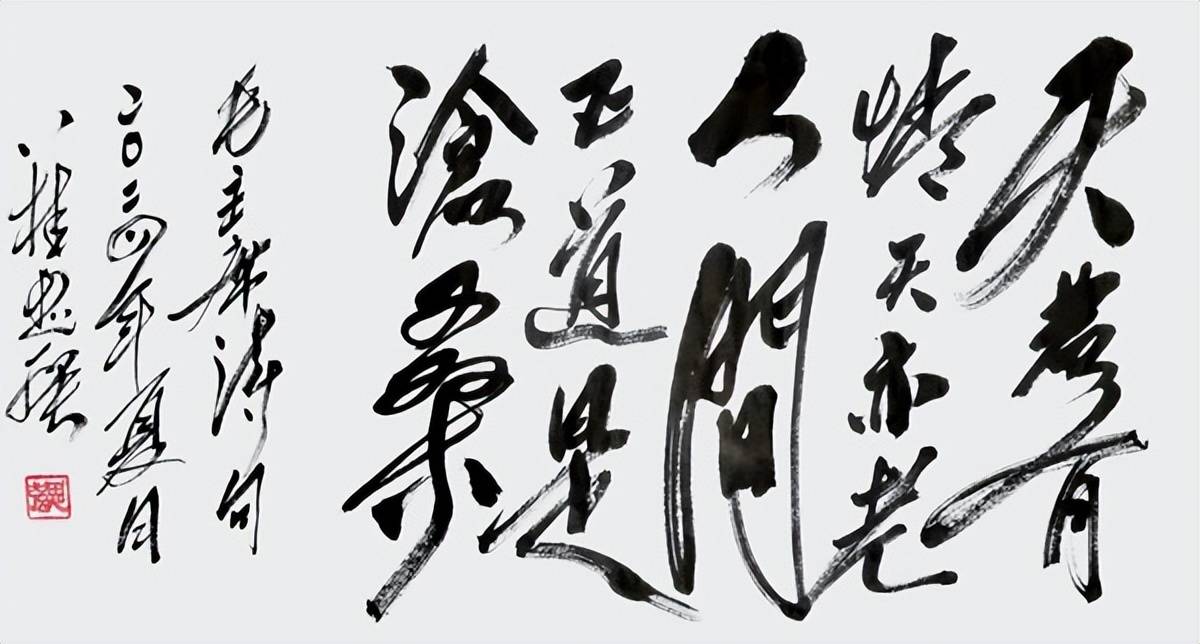 天若有
情天亦老
人間
正道是
滄桑
毛主席詩句
二〇二四年夏日
八桂